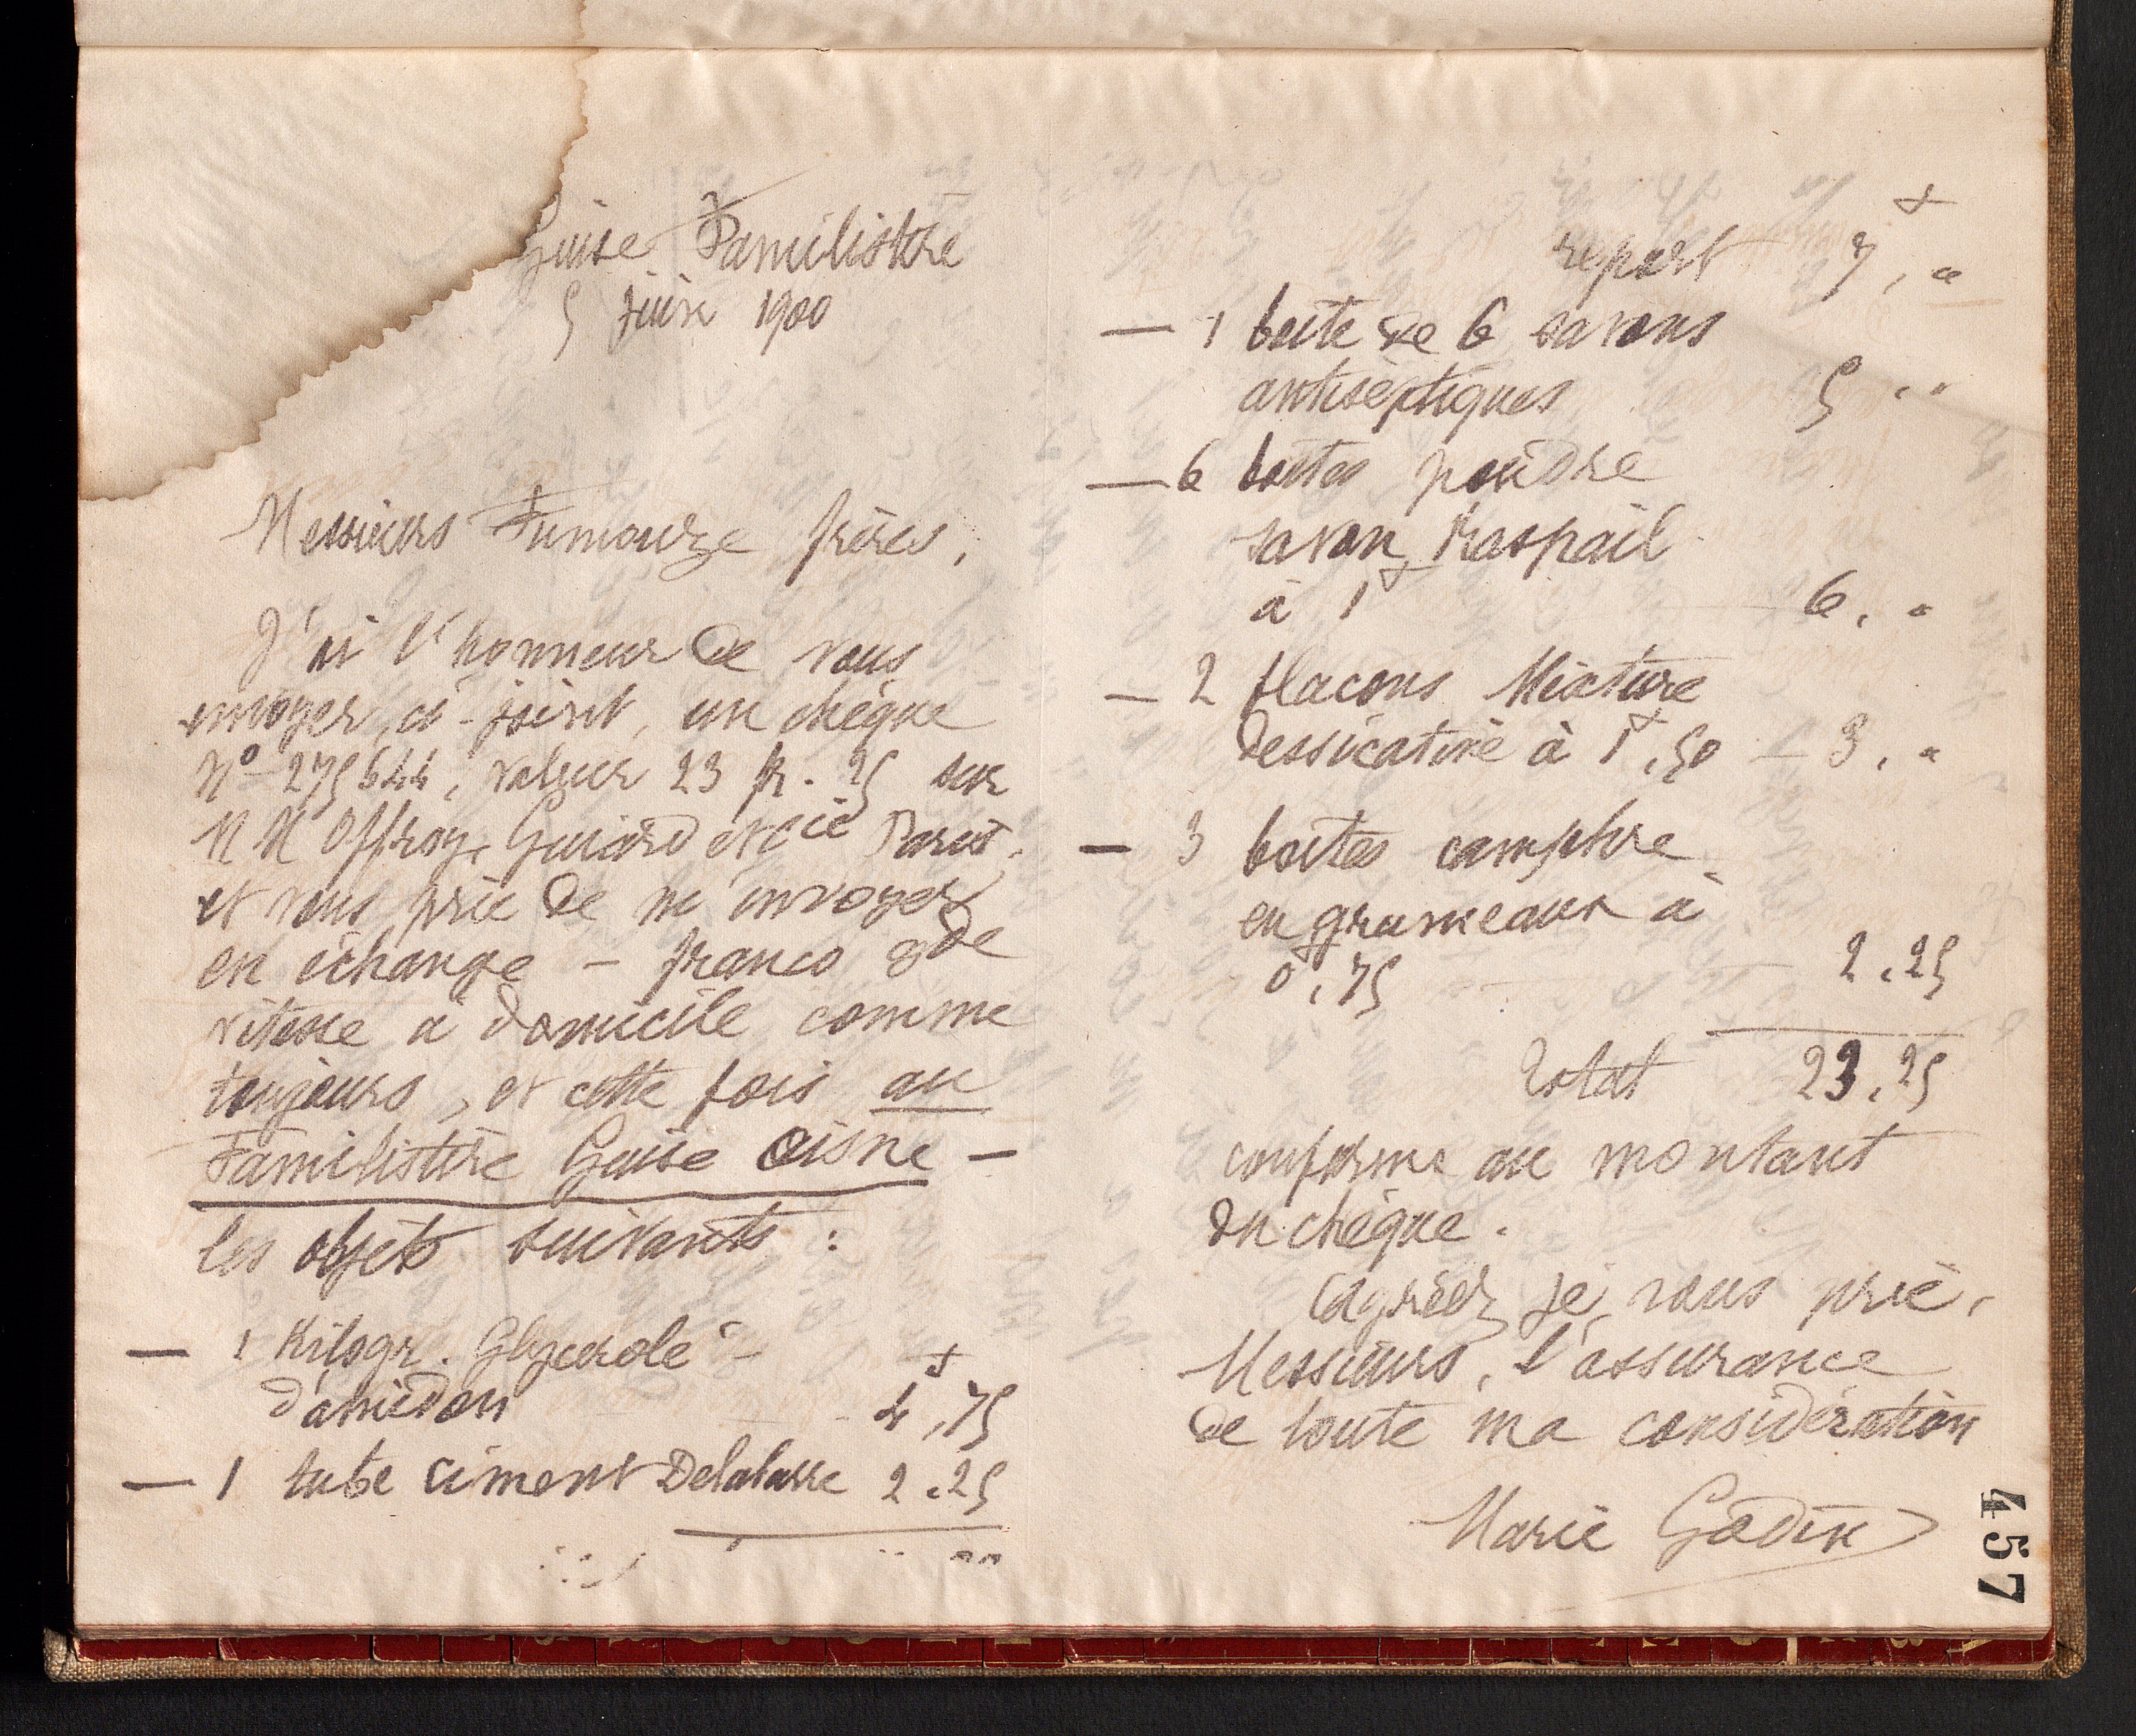 Guise Familistère
5 juin 1900
Messieurs Fumouze frères,
J'ai l'honneur de vous
envoyer, ci-joint, un chèque
No 275644, valeur 23 fr. 25 sur
MM Offroy, Guiard et Cie Paris,
et vous prie de m'envoyer
en échange - franco gde
vitesse à domicile comme
toujours, et cette fois au
Familistère Guise Aisne -
les objets suivants :
— 1 Kilogr. Glycerolé -
d'amidon 4f,75
— 1 tube ciment Delabarre 2.25
report 7f, "
— 1 boîte de 6 savons
antiséptiques 5 , "
— 6 boîtes poudre
savon Raspail
à 1f 6, "
— 2 flacons Mixture
dessicative à 1f,50 - 3, "
— 3 boîtes camphre
en grumeaux à
0f,75 2.25
Total 23,25
conforme au montant
du chèque.
Agréez, je vous prie,
Messieurs, l'assurance
de toute ma considération
Marie Godin
457